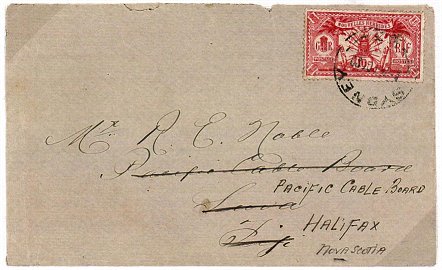 NOUVELLES HEBRIDES
SYDNEY
Mr. R. E. Noble
Pacific Cable Board
PACIFIC CABLE BOARD
Suva
HALIFAX
Fiji
NOVA SCOTIA